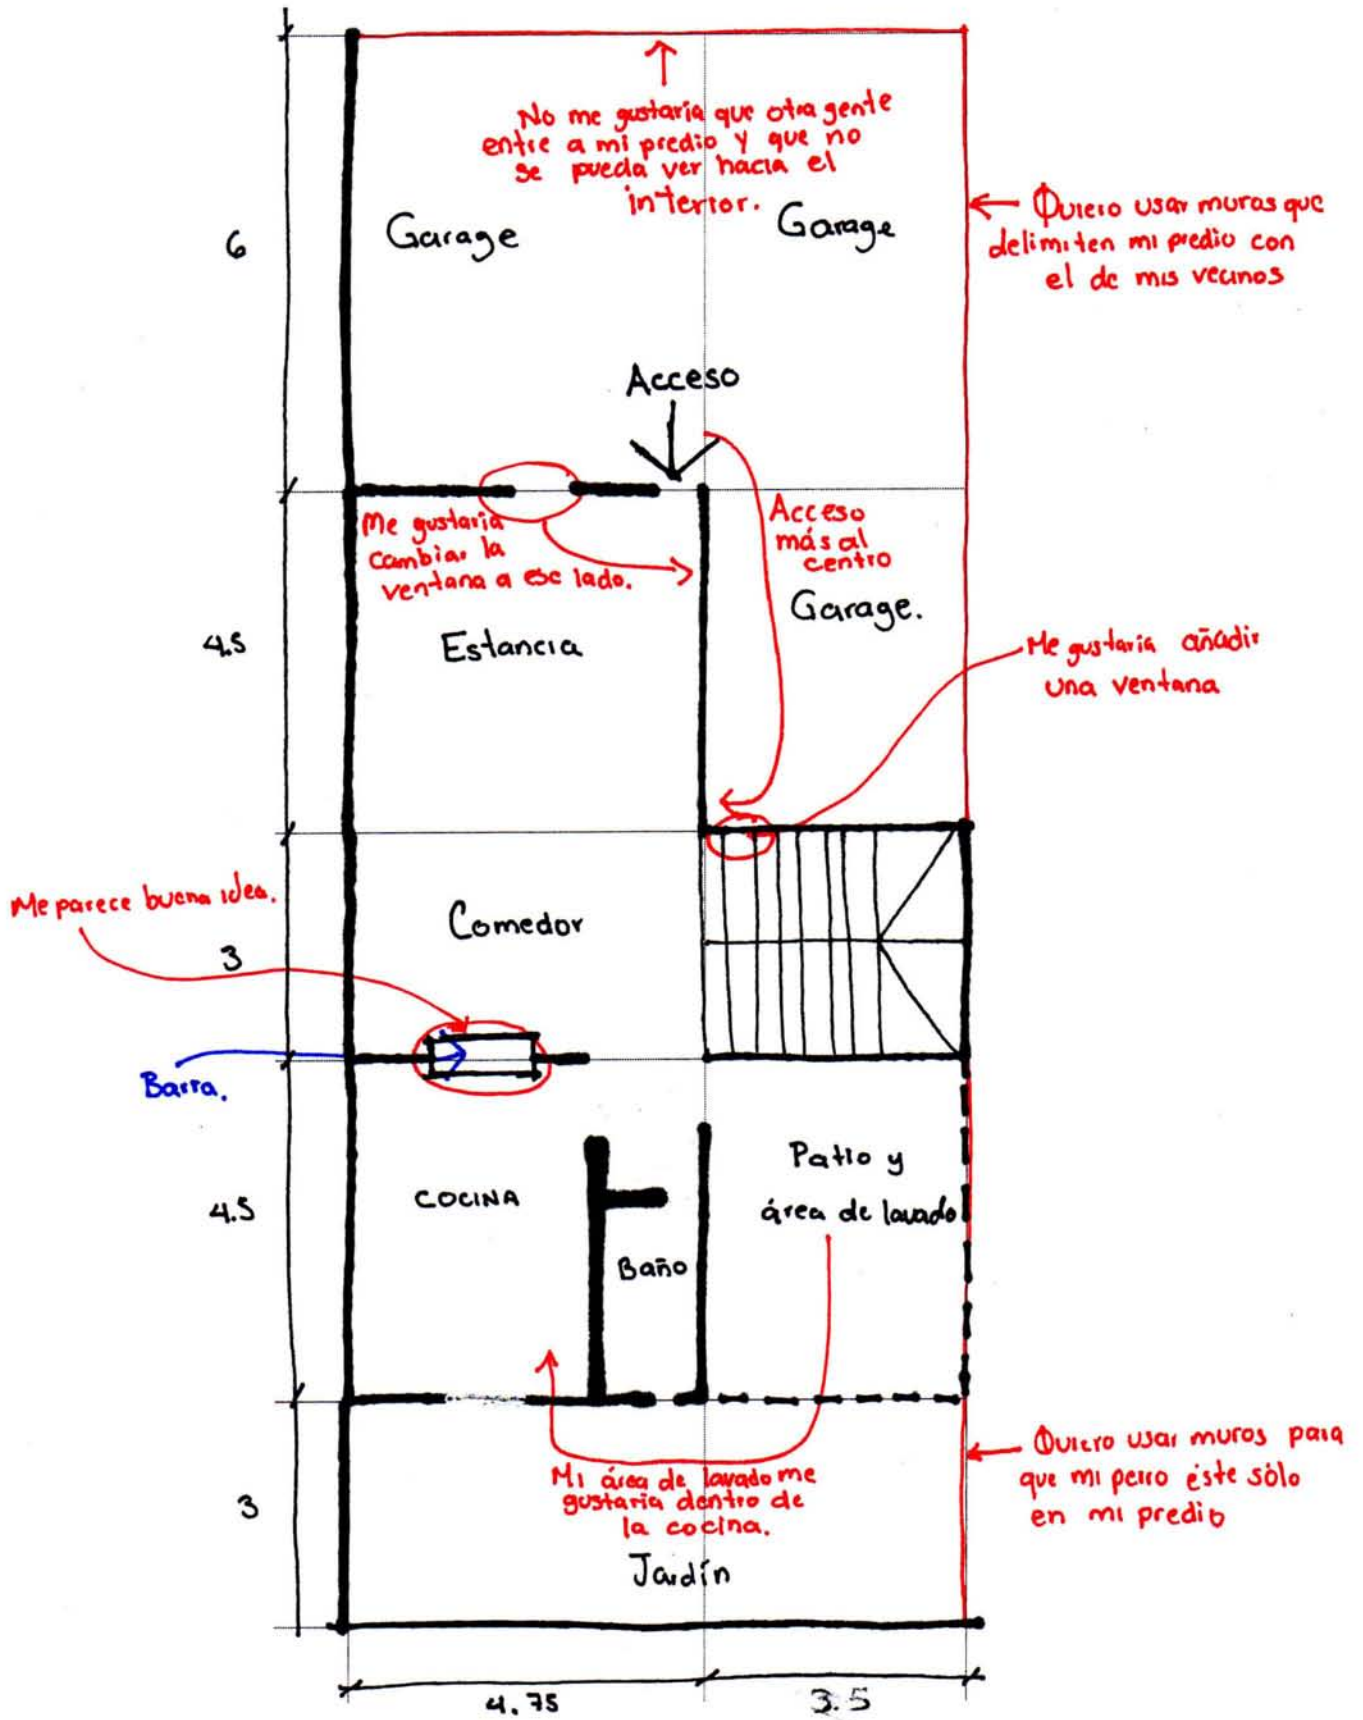 No me gustaria que otra gente
entre a mi predio y que no
se pueda ver hacia el
interior.
Garage
Garage
6
Quiero usar muros que
delimiten mi predio con
el de mis vecinos
Acceso
Me gustaria
cambiar la
ventana a ese lado.
Acceso
más al
centro
Garage.
4.5
Estancia
Me gustaria añadir
una ventana
Me parece buena idea.
Comedor
3
Barra.
COCINA
Patio y
área de lavado
4.5
Baño
Mi área de lavado me
gustaria dentro de
la cocina.
Quiero usar muros para
que mi perro éste sólo
en mi predio
3
Jardín
4.75
3.5